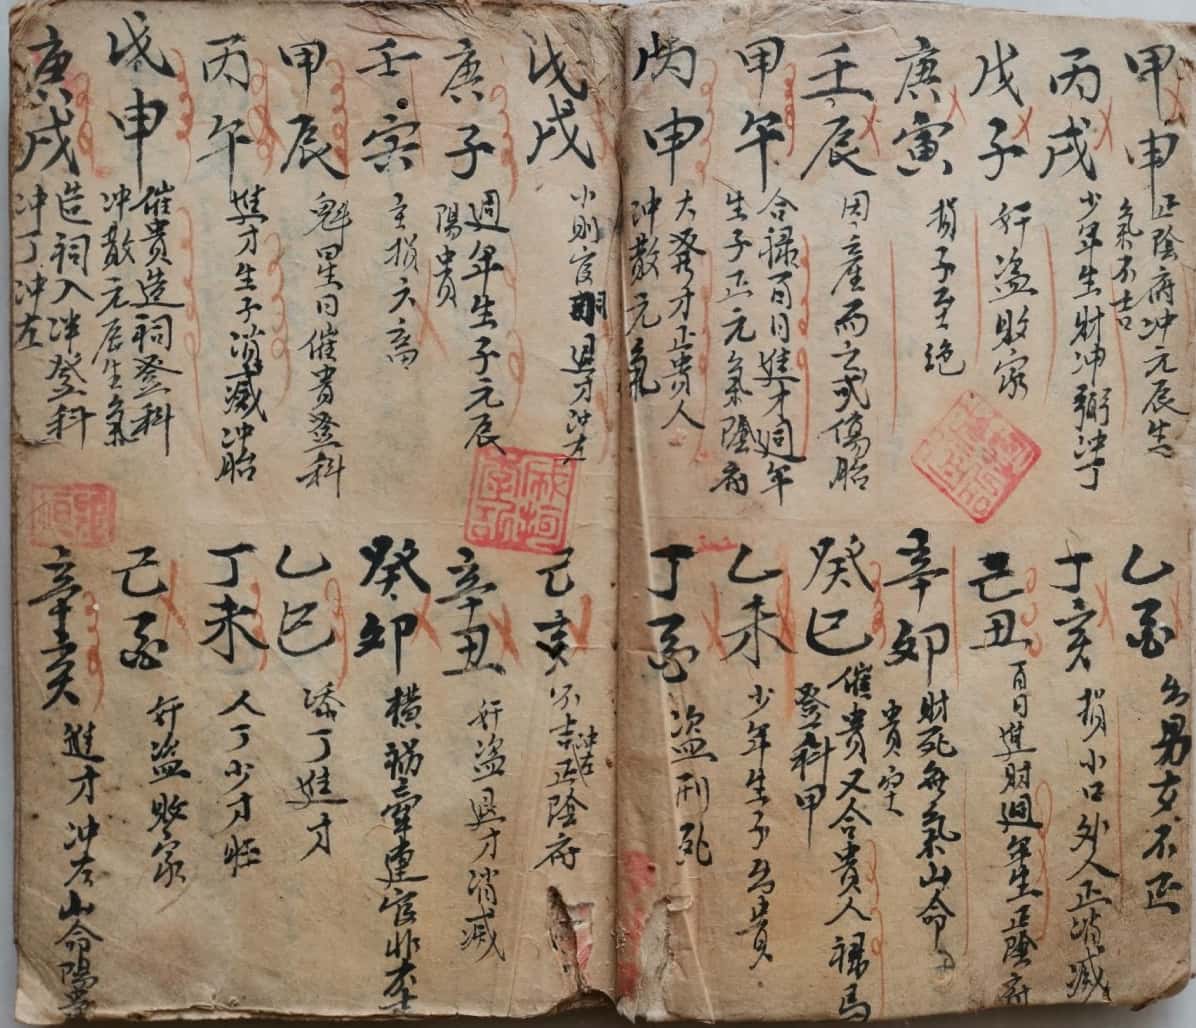 甲申 正陰府冲元辰生
氣不吉
丙戌 少年生財冲 冲丁
戊子 奸盗敗家
庚寅 損子至绝
壬辰 因産而亡或傷胎
甲午 合禄百日進才週年
生子正元氣陰府
丙申 大發才正贵人
冲散元氣
乙酉 出男女不正
丁亥 損小口外人正消滅
己丑 百日進財週年生正陰府
辛卯 財死無氣山命
贵
癸巳 催贵又合贵人禄馬
登科甲
乙未 少年生子出贵
丁酉 盗刑死
戊戌 小則官 退才冲左
庚子 週年生子元辰
陽贵
壬寅 主損六畜
甲辰 魁星日催贵登科
丙午 進才生子消滅冲胎
戊申 催贵造祠登科
冲散元辰生氣
庚戌 造祠入泮登科
冲丁冲左
己亥 不吉正陰府
冲右
辛丑 奸盗退才消滅
癸卯 横祸牽連官非
乙巳 添丁進才
丁未 人丁少才旺
己酉 奸盗敗家
辛亥 進才冲左山命陽贵